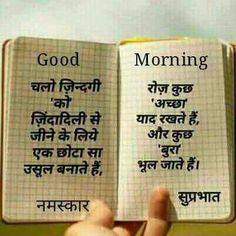 Good
चलो ज़िन्दगी
'को'
ज़िंदादिली से
जीने के लिये
एक छोटा सा
उसूल बनाते हैं,
नमस्कार
Morning
रोज़ कुछ
'अच्छा'
याद रखते हैं,
और कुछ
'बुरा'
भूल जाते हैं।
सुप्रभात